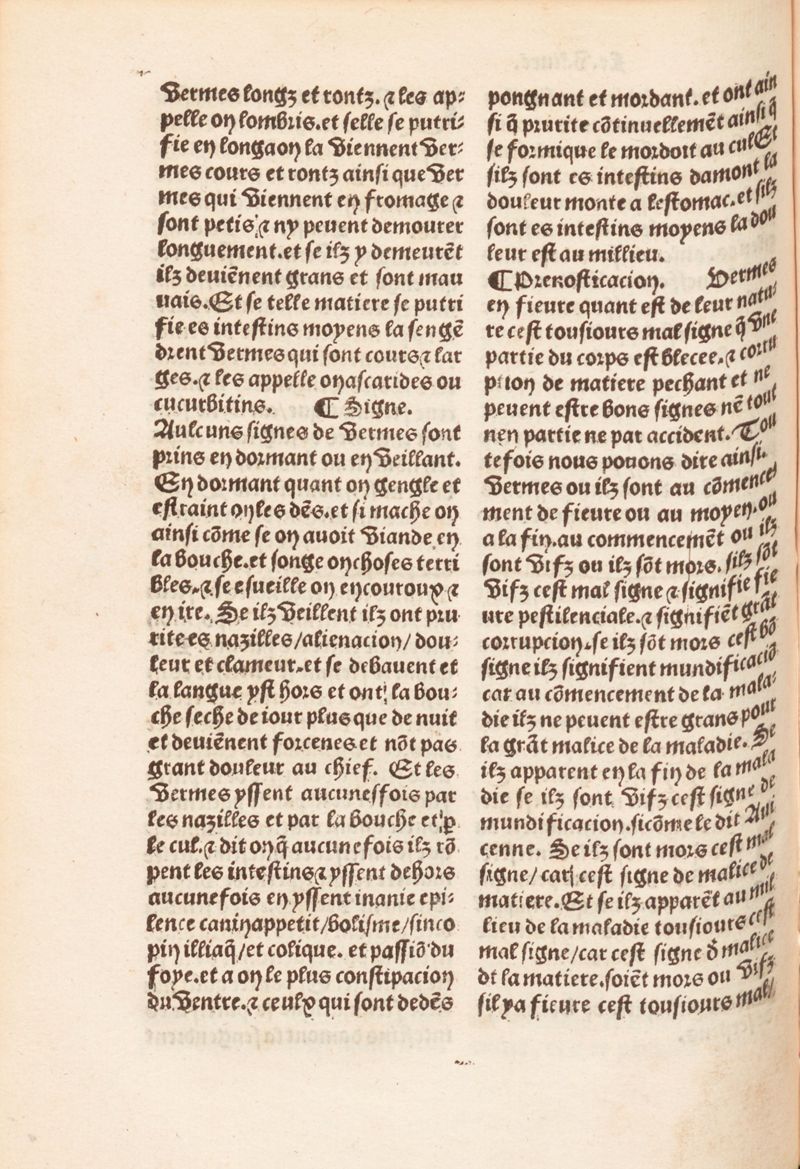 Vermes longz et rontz.⁊ les ap⸗
pelle on lombris.et selle se putri⸗
fie en longaon la viennent ver⸗
mes cours et rontz ainsi que ver
mes qui viennent en fromage ⁊
sont petis ⁊ ny peuent demourer
longuement.et se ilz y demeurẽt
ilz deuiẽnent grans et sont mau
uais.Et se telle matiere se putri
fie es intestins moyens la sengẽ
drent vermes qui sont cours ⁊ lar
ges.⁊ les appelle on ascarides ou
cucurbitins. ¶ Signe.
Aulcuns signes de vermes sont
prins en dormant ou en veillant.
En dormant quant on gengle et
estraint on les dẽs.et si mache on
ainsi cõme se on auoit viande en
la bouche.et songe on choses terri
bles.⁊ se esueille on en couroux ⁊
en ire. Se ilz veillent ilz ont pru
rite es nazilles/alienacion/dou⸗
leur et clameur.et se debauent et
la langue yst hors et ont la bou⸗
che seche de iour plus que de nuit
et deuiẽnent forcenes et nõt pas
grant douleur au chief. Et les
vermes yssent aucuneffois par
les nazilles et par la bouche et ꝑ
le cul.⁊ dit on q̃ aucunefois ilz rõ
pent les intestins ⁊ yssent dehors
aucunefois en yssent inanie epi⸗
lence canin appetit/bolisme/sinco
pin illiaq̃/et colique. et passiõ du
foye.et a on le plus constipacion
du ventre.⁊ ceulx qui sont dedẽs
pongnant et mordant.et ont ain
si q̃ prurite cõtinuellemẽt ainsi q̃
se formique le mordoit au cul Et
silz sont es intestins damont la
douleur monte a lestomac.et silz
sont es intestins moyens la dou
leur est au millieu.
¶ Prenosticacion. Vermes
en fieure quant est de leur natu⸗
re cest tousiours mal signe q̃ vne
partie du corps est blecee.⁊ corru
pcion de matiere pechant et ne
peuent estre bons signes nẽ tout
nen partie ne par accident. Tou
tefois nous pouons dire ainsi.
Vermes ou ilz sont au cõmence
ment de fieure ou au moyen.ou
a la fin.au commencemẽt ou ilz
sont vifz ou ilz sõt mors. silz sõt
vifz cest mal signe ⁊ signifie fie
ure pestilenciale.⁊ signifiẽt grãt
corrupcion.se ilz sõt mors cest bõ
signe ilz signifient mundificaciõ
car au cõmencement de la mala⸗
die ilz ne peuent estre grans pour
la grãt malice de la maladie. Se
ilz apparent en la fin de la mala
die se ilz sont vifz cest signe de
mundificacion.sicõme le dit Aui
cenne. Se ilz sont mors cest mal
signe/car cest signe de malice de
matiere.Et se ilz apparẽt au mil
lieu de la maladie tousiours cest
mal signe/car cest signe ð malice
de la matiere.soiẽt mors ou vifz
sil ya fieure cest tousiours mal